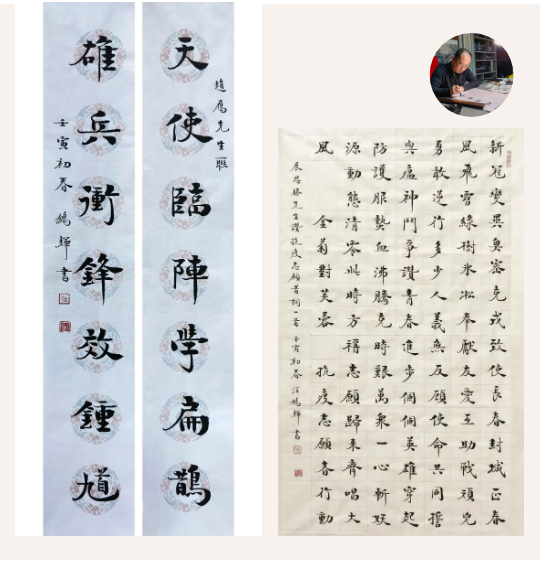 天使臨陣学扁鵲
先生聯
雄兵衝鋒效鍾馗
壬寅初春 鴻輝書
新冠變異奧密克戎致使長春封城正春
風飛雪綠樹氷凇奉獻友愛互助戰頑兇
勇敢逆行多少人義無反顧使命共同擔
與瘟神鬥爭讚青春進步個個英雄穿起
防護服熱血沸騰克時艱萬衆一心斬妖
源動態清零此時方稱志願歸來齊唱大
風 金菊對芙蓉 抗疫志願者行動
先生讚抗疫志願者詞一首 壬寅初春汪鴻輝書